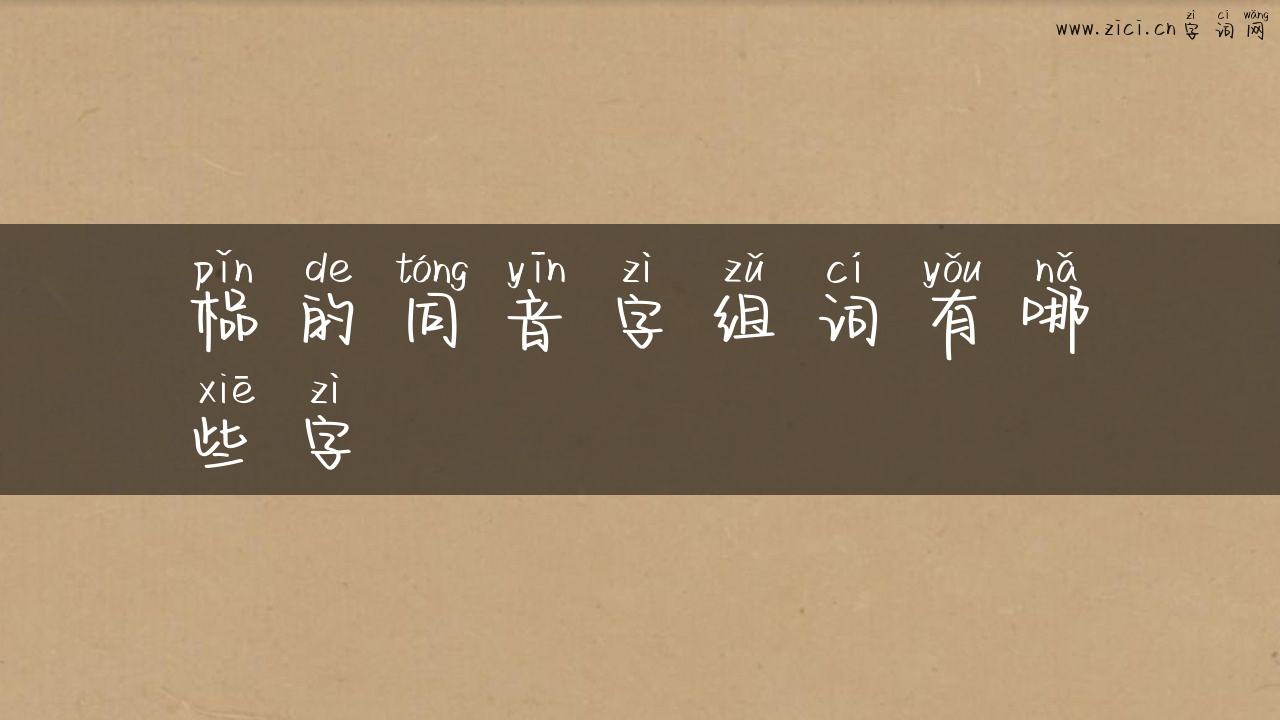 zì cí wǎng
www.zici.cn 字 词 网
pǐn de tóng yīn zì zǔ cí yǒu nǎ
榀 的 同 音 字 组 词 有 哪
xiē zì
些 字